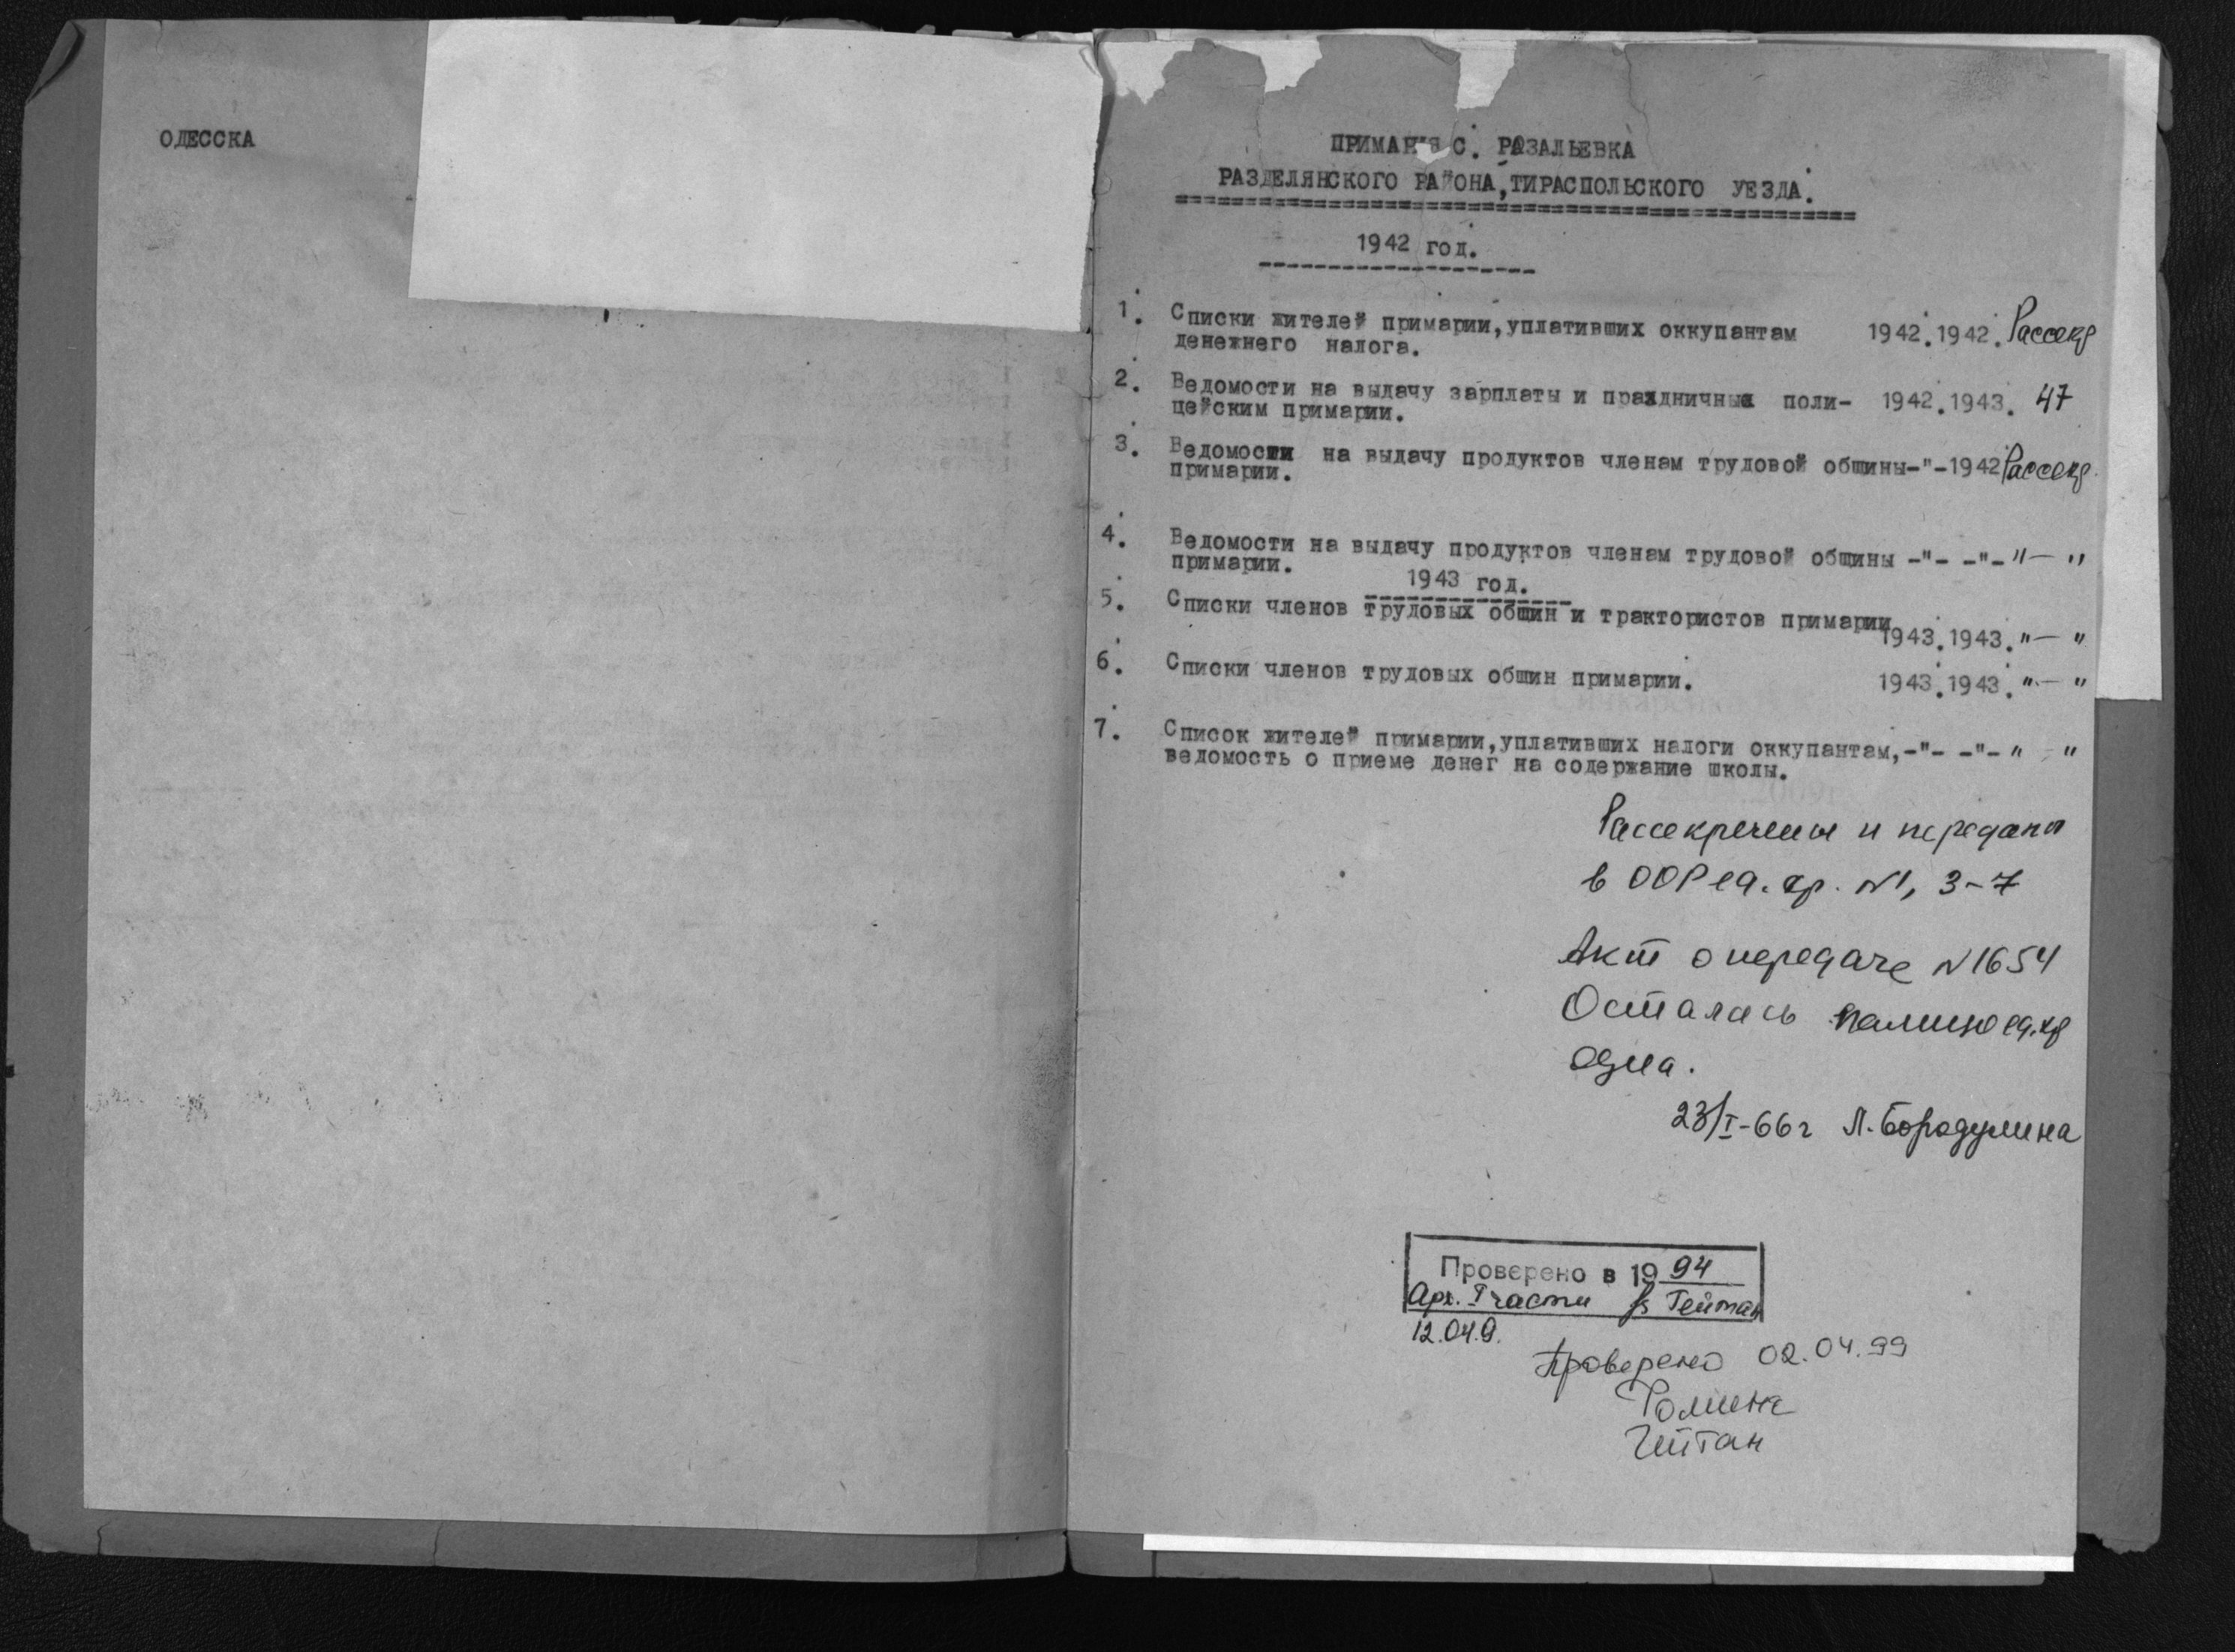 ОДЕССКА
ПРИМАРИЯ С. РОЗАЛЬЕВКА
РАЗДЕЛЯНСКОГО РАЙОНА, ТИРАСПОЛЬСКОГО УЕЗДА.
1942 год.
1. Списки жителей примарии, уплативших оккупантам 1942. 1942. Рассекр
денежнего налога.
2. Ведомости на выдачу зарплаты и праздничных поли- 1942. 1943. 47
цейским примарии.
3. Ведомости на выдачу продуктов членам трудовой общины-"-1942 Рассекр
примарии.
4. Ведомости на выдачу продуктов членам трудовой общины -"- -"- "— "
примарии.
1943 год.
5. Списки членов трудовых общин и трактористов примарии
1943. 1943. "— "
6. Списки членов трудовых общин примарии. 1943. 1943. "— "
7. Список жителей примарии, уплативших налоги оккупантам, -"- -"- " - "
ведомость о приеме денег на содержание школы.
Рассекречены и переданы
в ООР ед. хр. №1, 3-7
Акт о передаче №1654
Осталась ед. хр
одна.
23/I-66г Л. Бородулина
Проверено в 1994
Арх. I части Гейтан
12.04.9.
Проверено 02.04.99
Фомина
Гейтан